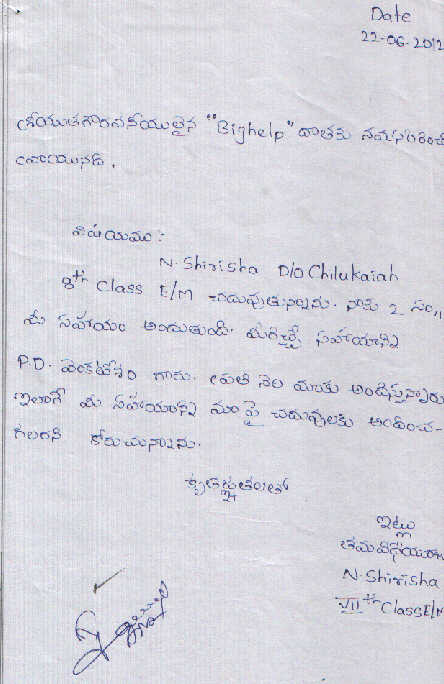 Date
22-06-2012
శ్రీయుతగౌరవనీయులైన "Bighelp" దాతకు నమస్కరించి
వ్రాయునది.
విషయము:
N. Shirisha D/o Chilukaiah
8th Class E/M చదువుతున్నాను. నాకు 2 సం॥
మీ సహాయం అందుతుంది. మీరిచ్చే సహాయాన్ని
P.D. వెంకటేశం గారు. ప్రతి నెల మాకు అందిస్తున్నారు
ఇలాగే మీ సహాయాన్ని నా పై చదువులకు అందించ-
గలరని కోరుచున్నాను.
కృతజ్ఞతలతో
ఇట్లు
తమ విధేయురాలు
N. Shirisha
VIIIth Class E/M